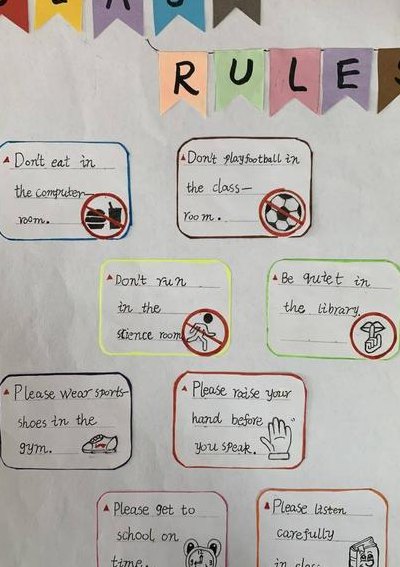 RULES
Don't eat in
the computer-
room.
Don't playfootball in
the class-
room.
Don't run
in the
science room
Be quiet in
the library.
Please wear sports-
shoes in the
gym.
Please raise your
hand before
you speak.
Please get to
school on
time.
Please listen
carefully
in class